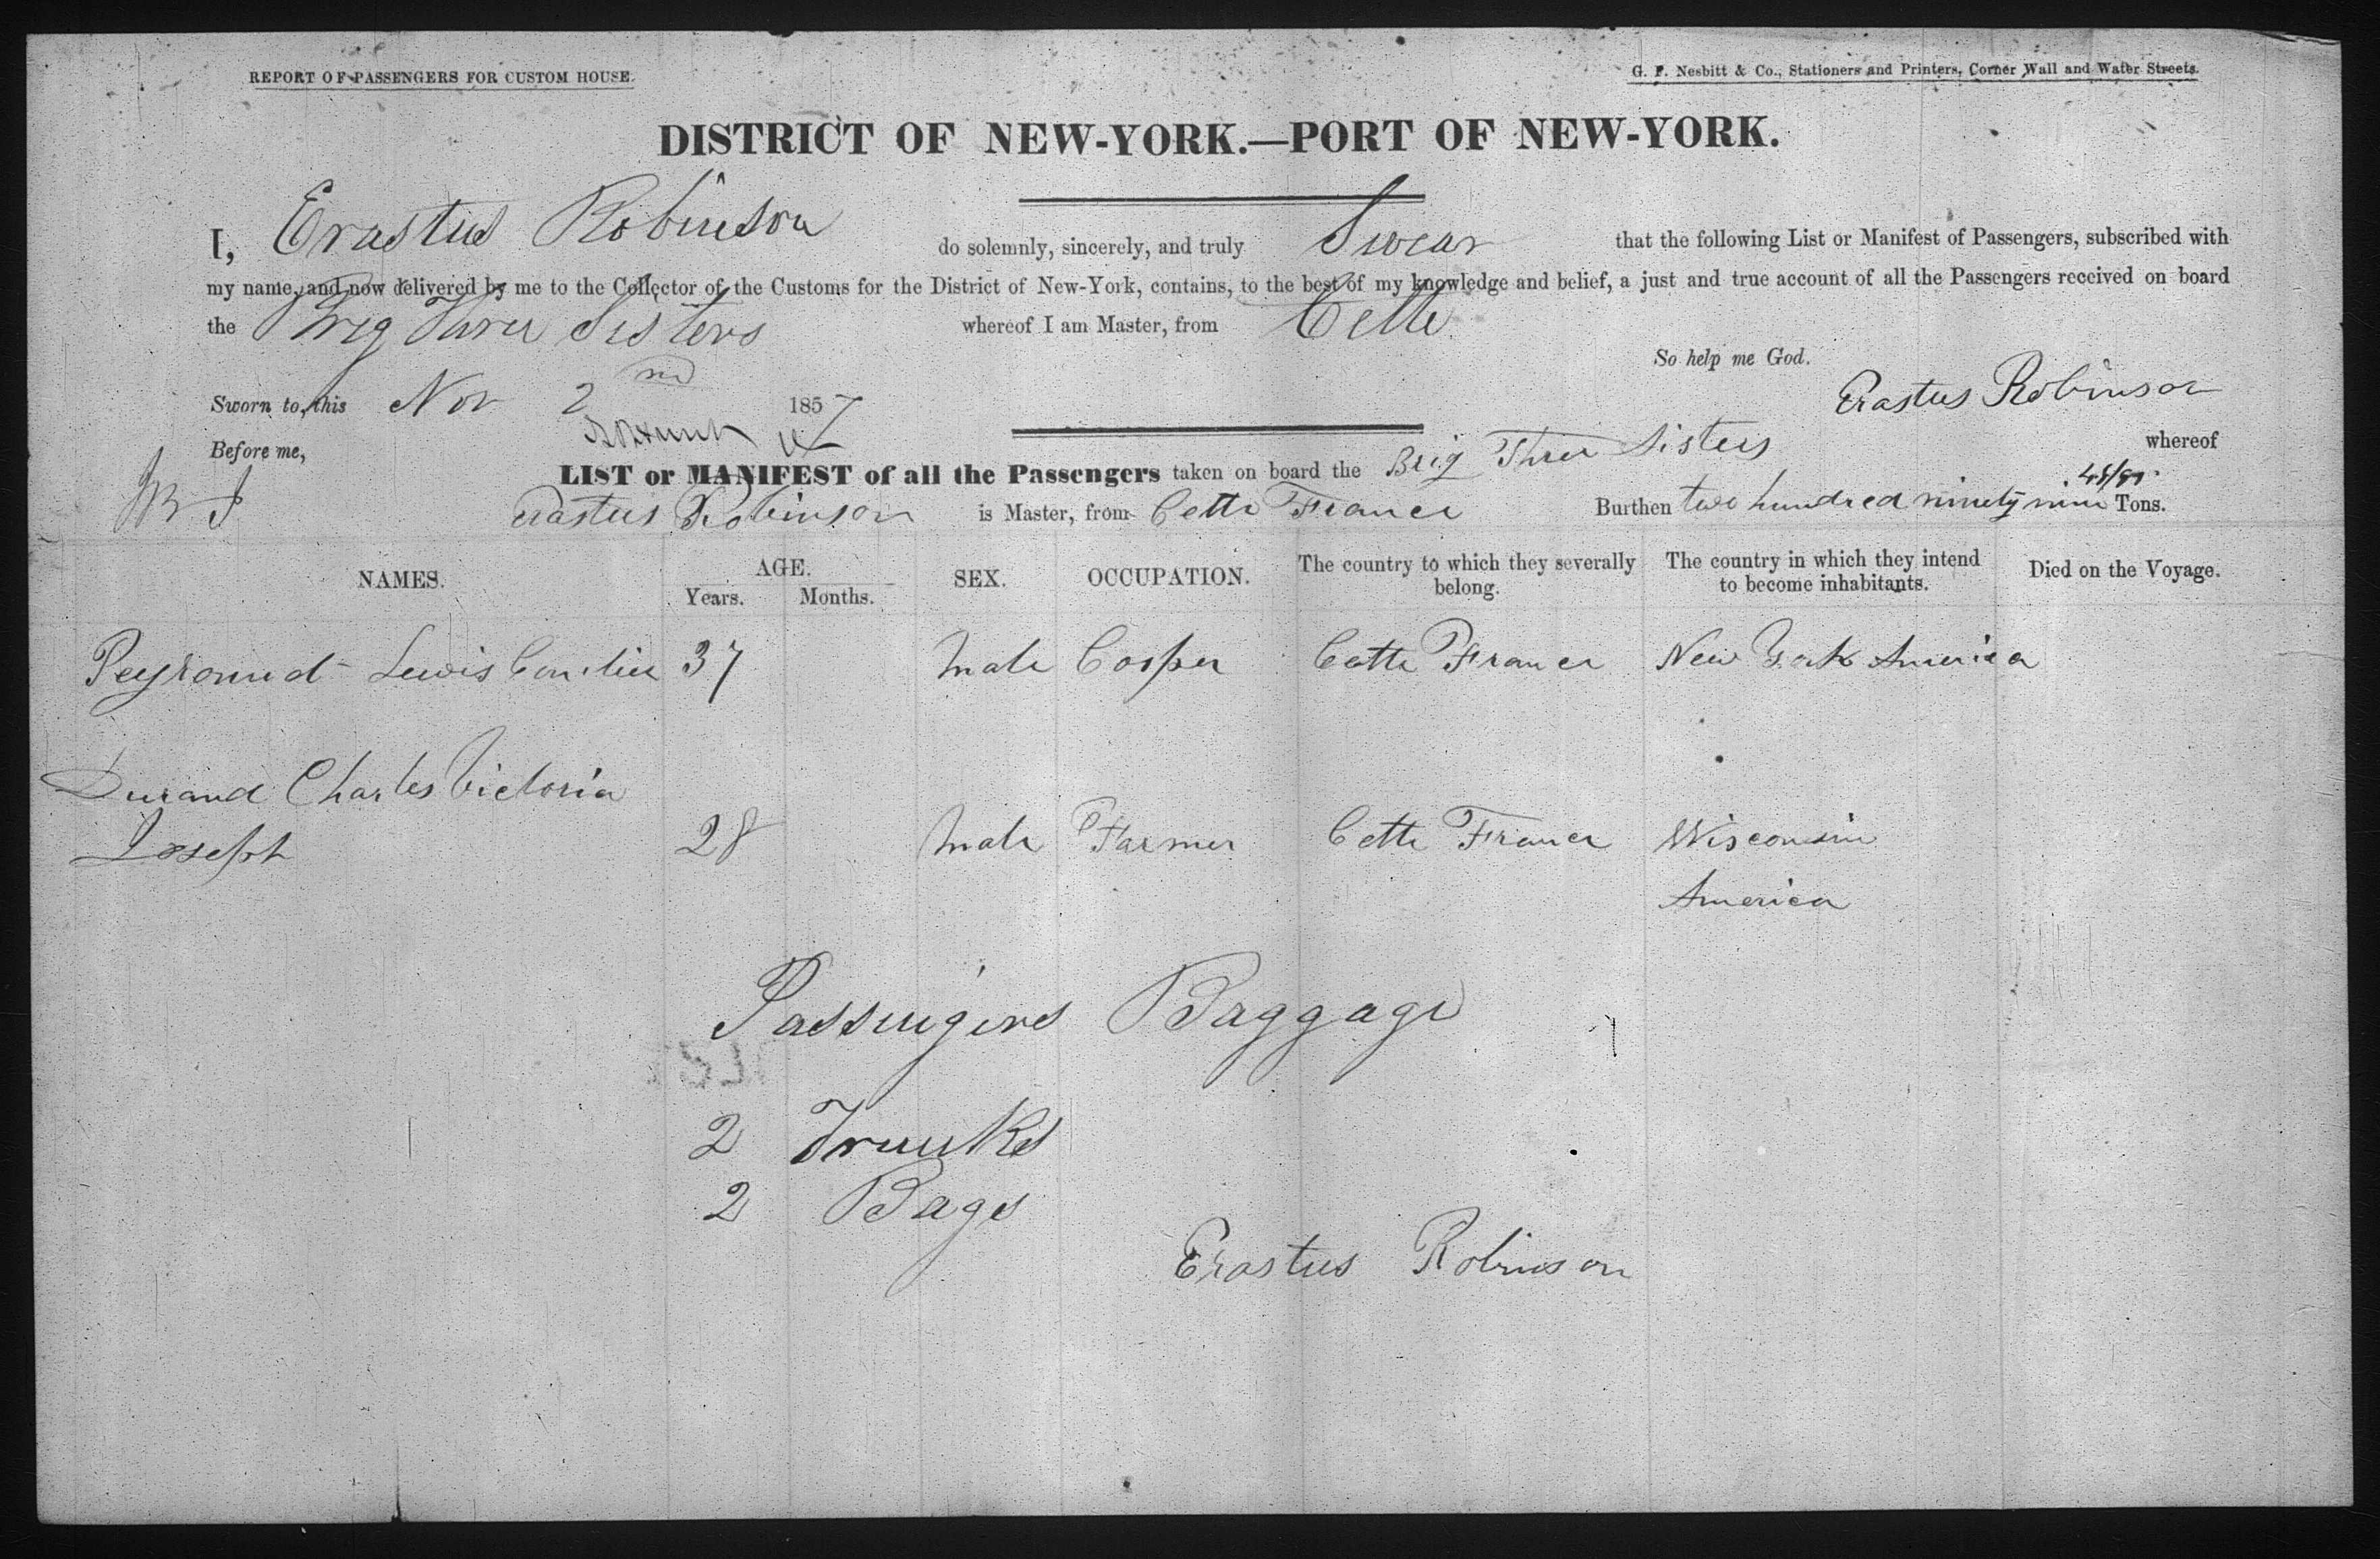 REPORT OF PASSENGERS FOR CUSTOM HOUSE.
G. F. Nesbitt & Co., Stationers and Printers, Corner Wall and Water Streets.
DISTRICT OF NEW-YORK.—PORT OF NEW-YORK.
I, Erastus Robinson do solemnly, sincerely, and truly Swear that the following List or Manifest of Passengers, subscribed with
my name, and now delivered by me to the Collector of the Customs for the District of New-York, contains, to the best of my knowledge and belief, a just and true account of all the Passengers received on board
the Brig Three Sisters whereof I am Master, from Cette
So help me God.
Sworn to, this Nov 2nd 1857 Erastus Robinson
Before me,
LIST or MANIFEST of all the Passengers taken on board the Brig Three Sisters whereof
Erastus Robinson is Master, from Cette France Burthen two hundred ninety nine Tons.
NAMES. AGE. Years. Months. SEX. OCCUPATION. The country to which they severally belong. The country in which they intend to become inhabitants. Died on the Voyage.
Lewis 37 Male Cooper Cette France New York America
Durand Charles Victoria
Joseph 28 Male Farmer Cette France Wisconsin
America
Passengers Baggage
2 Trunks
2 Bags
Erastus Robinson